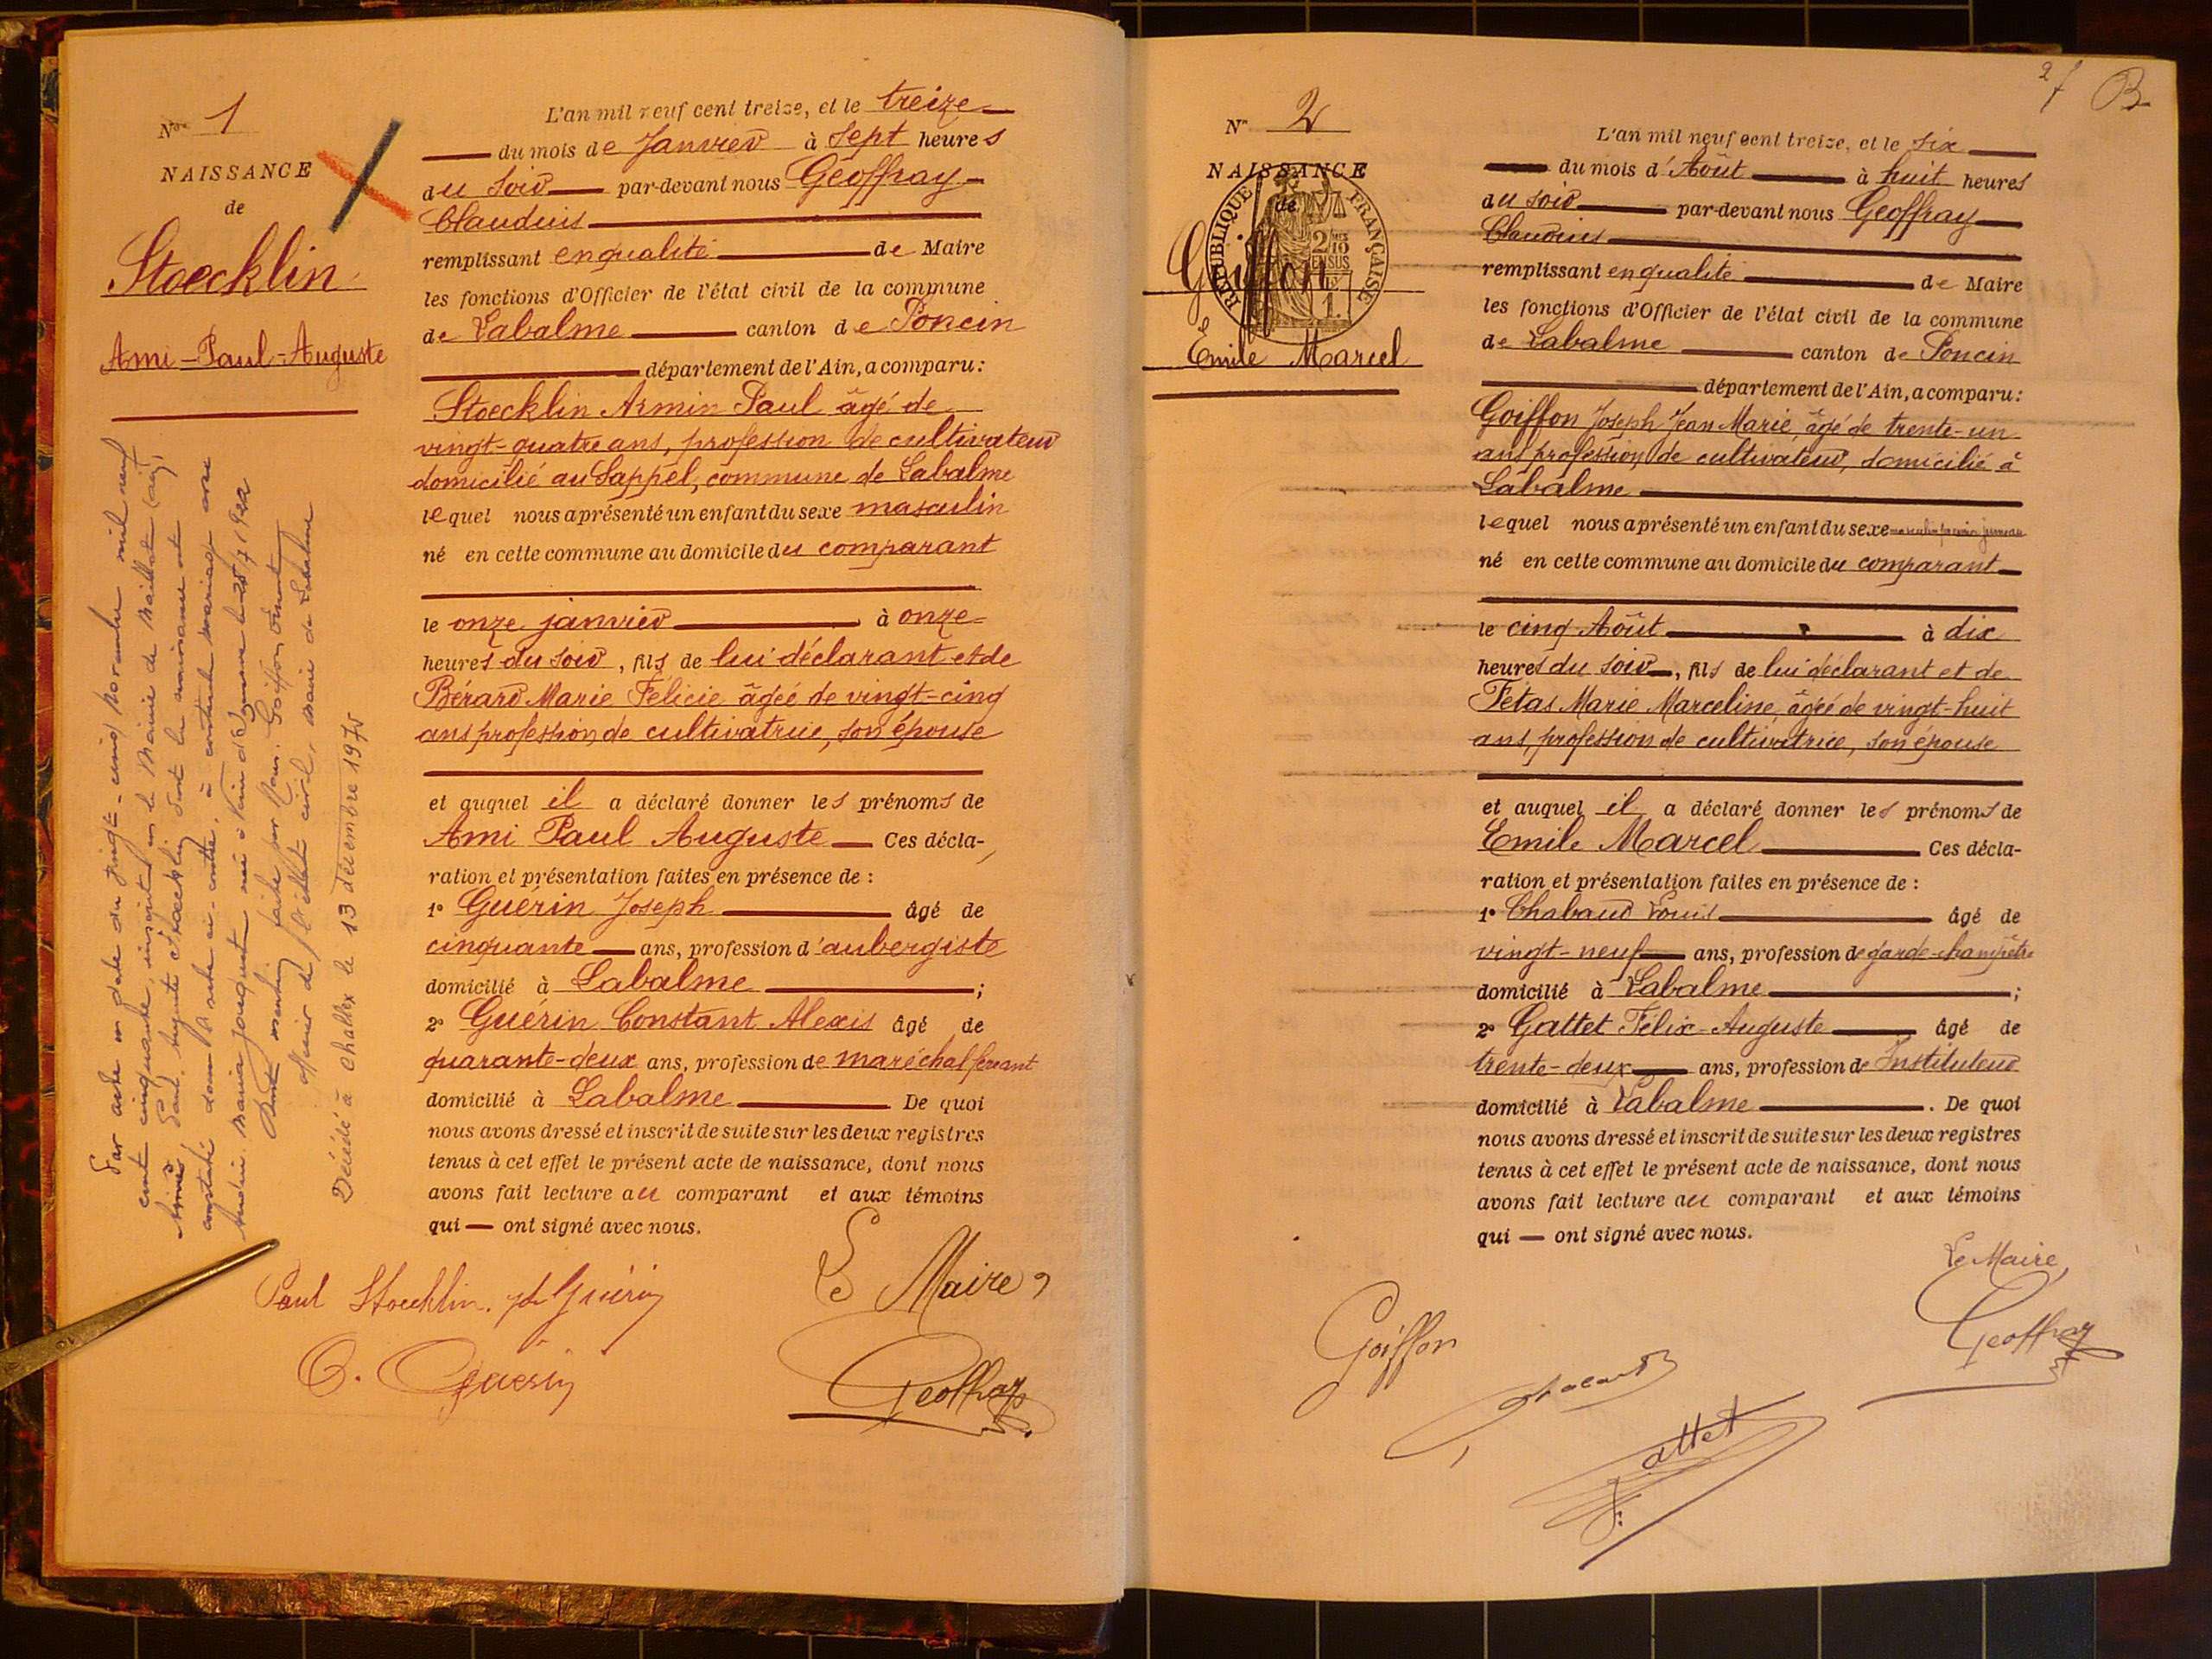 N° 1
NAISSANCE
de
Stoecklin
Ami-Paul-Auguste
L'an mil neuf cent treize, et le treize
du mois de Janvier à sept heures
du soir par-devant nous Geoffray
Claudius
remplissant en qualité de Maire
les fonctions d'Officier de l'état civil de la commune
de Labalme canton de Poncin
département de l'Ain, a comparu:
Stoecklin Armin Paul âgé de
vingt-quatre ans, profession de cultivateur
domicilié au Sappel, commune de Labalme
lequel nous a présenté un enfant du sexe masculin
né en cette commune au domicile du comparant
le onze janvier à onze
heures du soir, fils de lui déclarant et de
Bérard Marie Félicie âgée de vingt-cinq
ans profession de cultivatrice, son épouse
et auquel il a déclaré donner les prénoms de
Ami Paul Auguste Ces décla-
ration et présentation faites en présence de :
1° Guérin Joseph âgé de
cinquante ans, profession d'aubergiste
domicilié à Labalme ;
2° Guérin Constant Alexis âgé de
quarante-deux ans, profession de maréchal ferrant
domicilié à Labalme De quoi
nous avons dressé et inscrit de suite sur les deux registres
tenus à cet effet le présent acte de naissance, dont nous
avons fait lecture au comparant et aux témoins
qui — ont signé avec nous.
Paul Stoecklin. Guérin
Le Maire,
C. Guérin
Geoffray
Par acte en date du vingt-cinq novembre mil neuf
cent cinquante, inscrit en la Mairie de Maillat (Ain),
Paul, Auguste Stoecklin dont la naissance est
constatée dans l'acte ci-contre, a contracté mariage avec
Maria Jacquet née à
mention faite par Nous. Goiffon
officier de l'état civil, maire de Labalme
Décédé à Challex le 13 décembre 1975
27 B
N° 2
NAISSANCE
de
RÉPUBLIQUE FRANÇAISE
2/10 EN SUS
Goiffon
Emile Marcel
L'an mil neuf cent treize, et le six
du mois d'Août à huit heures
du soir par-devant nous Geoffray
Claudius
remplissant en qualité de Maire
les fonctions d'Officier de l'état civil de la commune
de Labalme canton de Poncin
département de l'Ain, a comparu:
Goiffon Joseph Jean Marie, âgé de trente-un
ans profession de cultivateur, domicilié à
Labalme
lequel nous a présenté un enfant du sexe masculin
né en cette commune au domicile du comparant
le cinq Août à dix
heures du soir, fils de lui déclarant et de
Fétas Marie Marceline, âgée de vingt-huit
ans, profession de cultivatrice, son épouse
et auquel il a déclaré donner les prénoms de
Emile Marcel Ces décla-
ration et présentation faites en présence de :
1° Chabaud Louis âgé de
vingt-neuf ans, profession de garde-champêtre
domicilié à Labalme ;
2° Gattet Félix-Auguste âgé de
trente-deux ans, profession de Instituteur
domicilié à Labalme . De quoi
nous avons dressé et inscrit de suite sur les deux registres
tenus à cet effet le présent acte de naissance, dont nous
avons fait lecture au comparant et aux témoins
qui — ont signé avec nous.
Le Maire,
Goiffon
Geoffray
Gattet